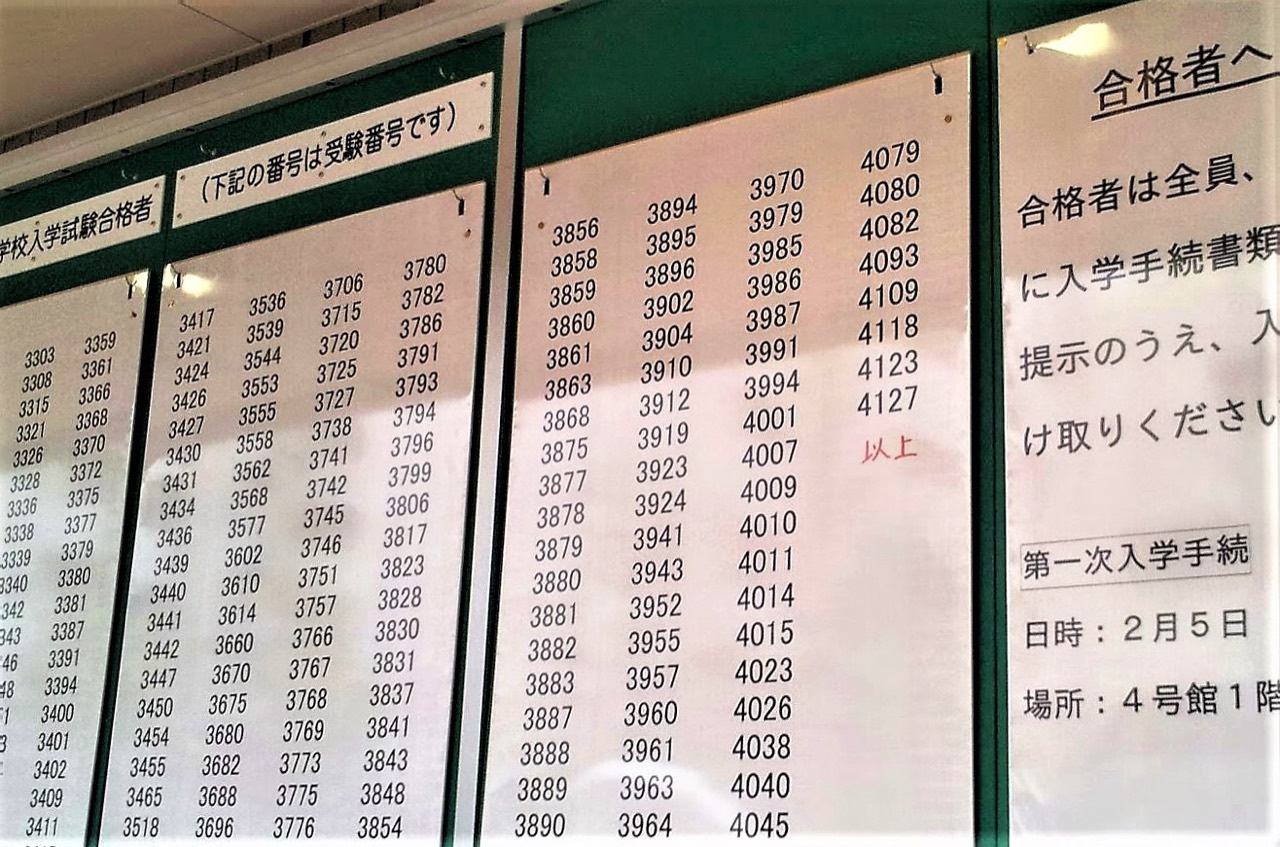 学校入学試験合格者
(下記の番号は受験番号です)
3303 3359
3308 3361
3315 3366
3321 3368
3326 3370
3328 3372
3336 3375
3338 3377
3339 3379
3340 3380
342 3381
343 3387
46 3391
48 3394
3400
3401
3402
3409
3411
3417 3536 3706 3780
3421 3539 3715 3782
3424 3544 3720 3786
3426 3553 3725 3791
3427 3555 3727 3793
3430 3558 3738 3794
3431 3562 3741 3796
3434 3568 3742 3799
3436 3577 3745 3806
3439 3602 3746 3817
3440 3610 3751 3823
3441 3614 3757 3828
3442 3660 3766 3830
3447 3670 3767 3831
3450 3675 3768 3837
3454 3680 3769 3841
3455 3682 3773 3843
3465 3688 3775 3848
3518 3696 3776 3854
3856 3894 3970 4079
3858 3895 3979 4080
3859 3896 3985 4082
3860 3902 3986 4093
3861 3904 3987 4109
3863 3910 3991 4118
3868 3912 3994 4123
3875 3919 4001 4127
3877 3923 4007 以上
3878 3924 4009
3879 3941 4010
3880 3943 4011
3881 3952 4014
3882 3955 4015
3883 3957 4023
3887 3960 4026
3888 3961 4038
3889 3963 4040
3890 3964 4045
合格者へ
合格者は全員、
に入学手続書類
提示のうえ、入
け取りください
第一次入学手続
日時：２月５日
場所：４号館１階